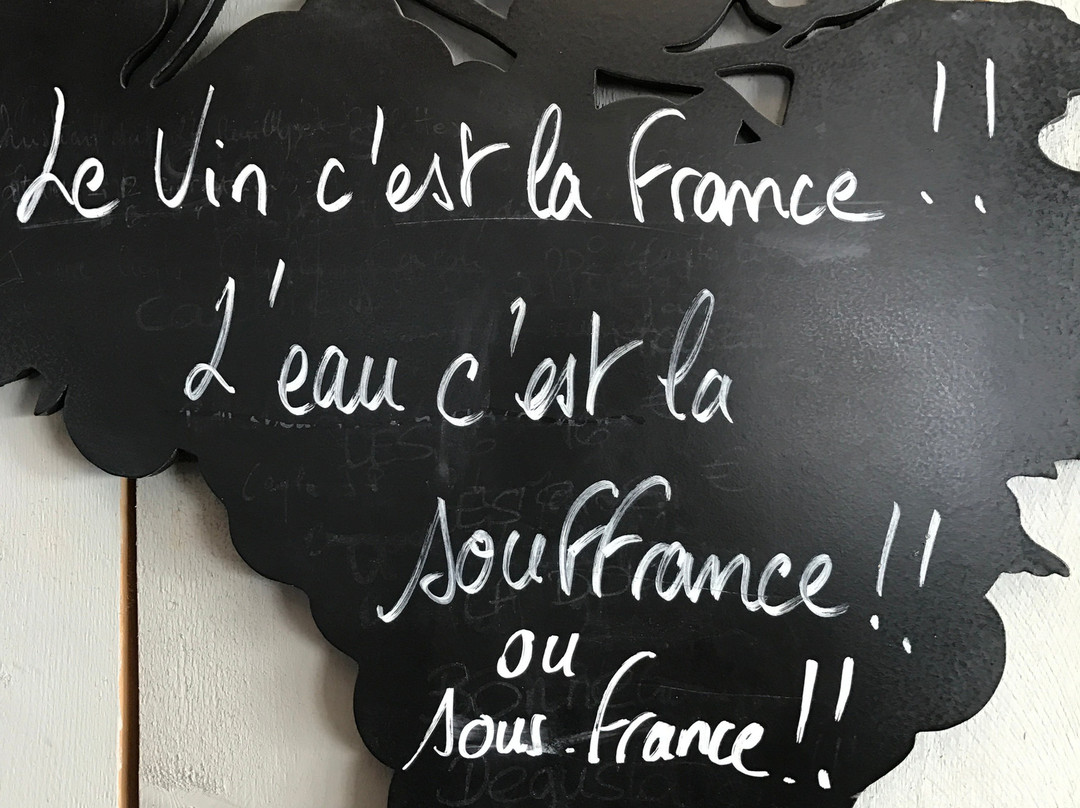 Le Vin c'est la France !!
L'eau c'est la
souffrance !!
ou
sous-france !!